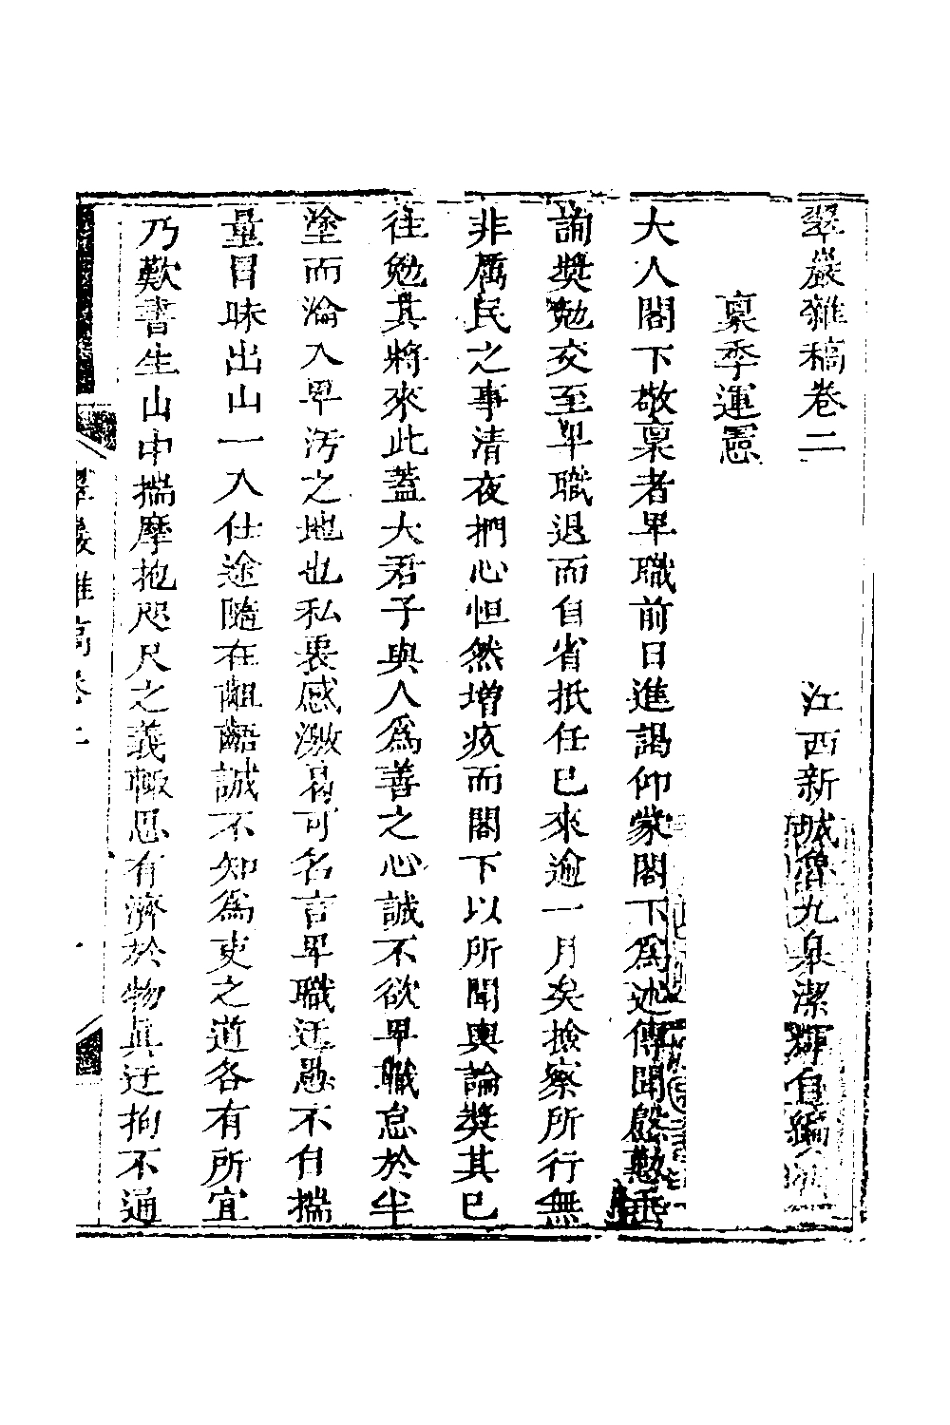 翠巖雜稿卷二
江西新城魯九臯潔輝自編
稟季運憲
大人閣下敬稟者卑職前日進謁仰蒙閣下爲述傳聞慇懃垂
詢獎勉交至卑職退而自省抵任已來逾一月矣撿察所行無
非厲民之事清夜捫心怛然增疚而閣下以所聞輿論獎其已
往勉其將來此蓋大君子與人爲善之心誠不欲卑職怠於半
塗而淪入卑汚之地也私衷感激曷可名言卑職迂愚不自揣
量冒昧出山一入仕途隨在齟齬誠不知爲吏之道各有所宜
乃歎書生山中揣摩抱咫尺之義輙思有濟於物眞迂拘不通
翠巖雜稿卷二